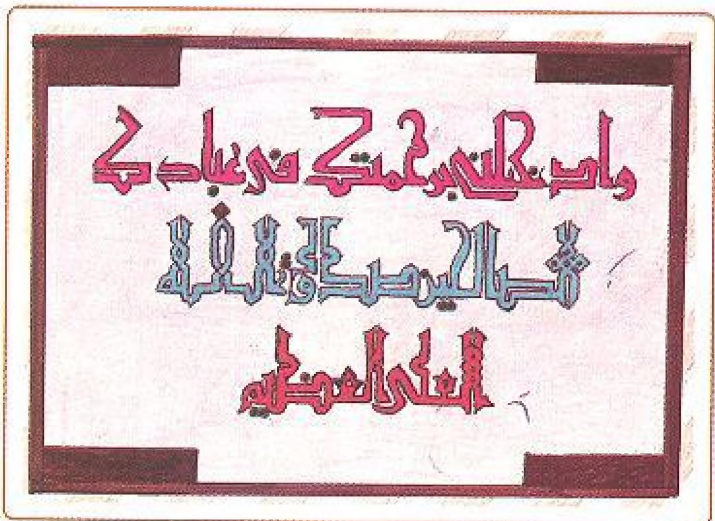 وادخلني برحمتك في عبادك
الصالحين صدق الله
العلي العظيم